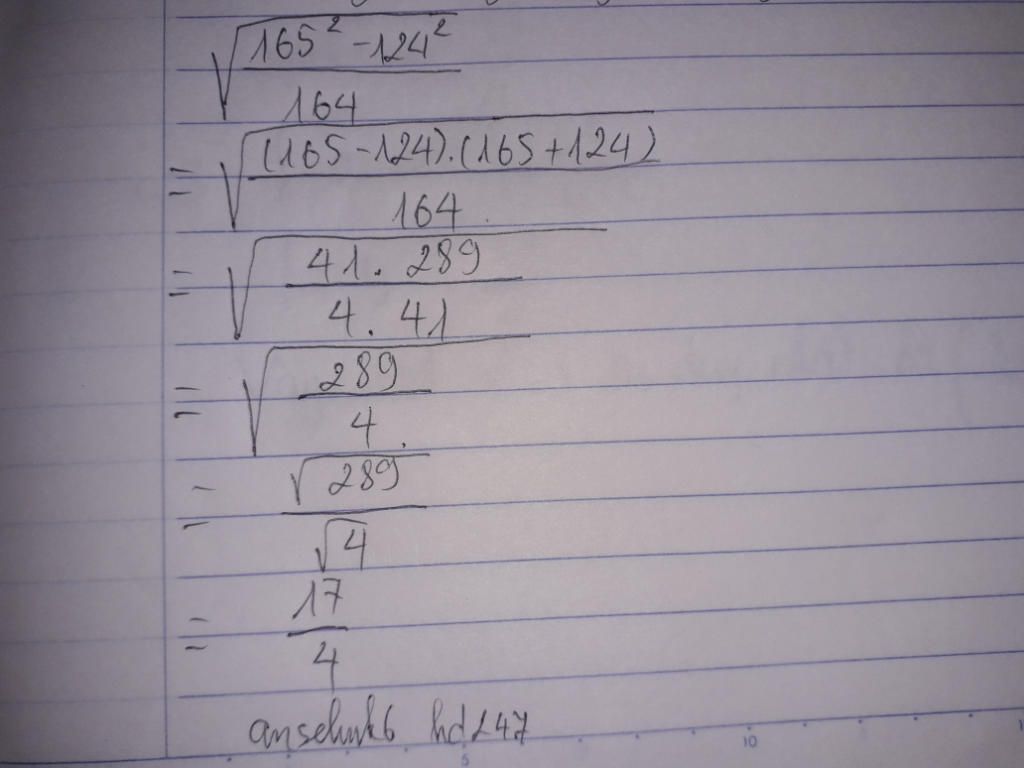 √(165² - 124² / 164)
= √((165 - 124).(165 + 124) / 164)
= √(41 . 289 / 4 . 41)
= √(289 / 4)
= √289 / √4
= 17 / 4
hd247
5 10